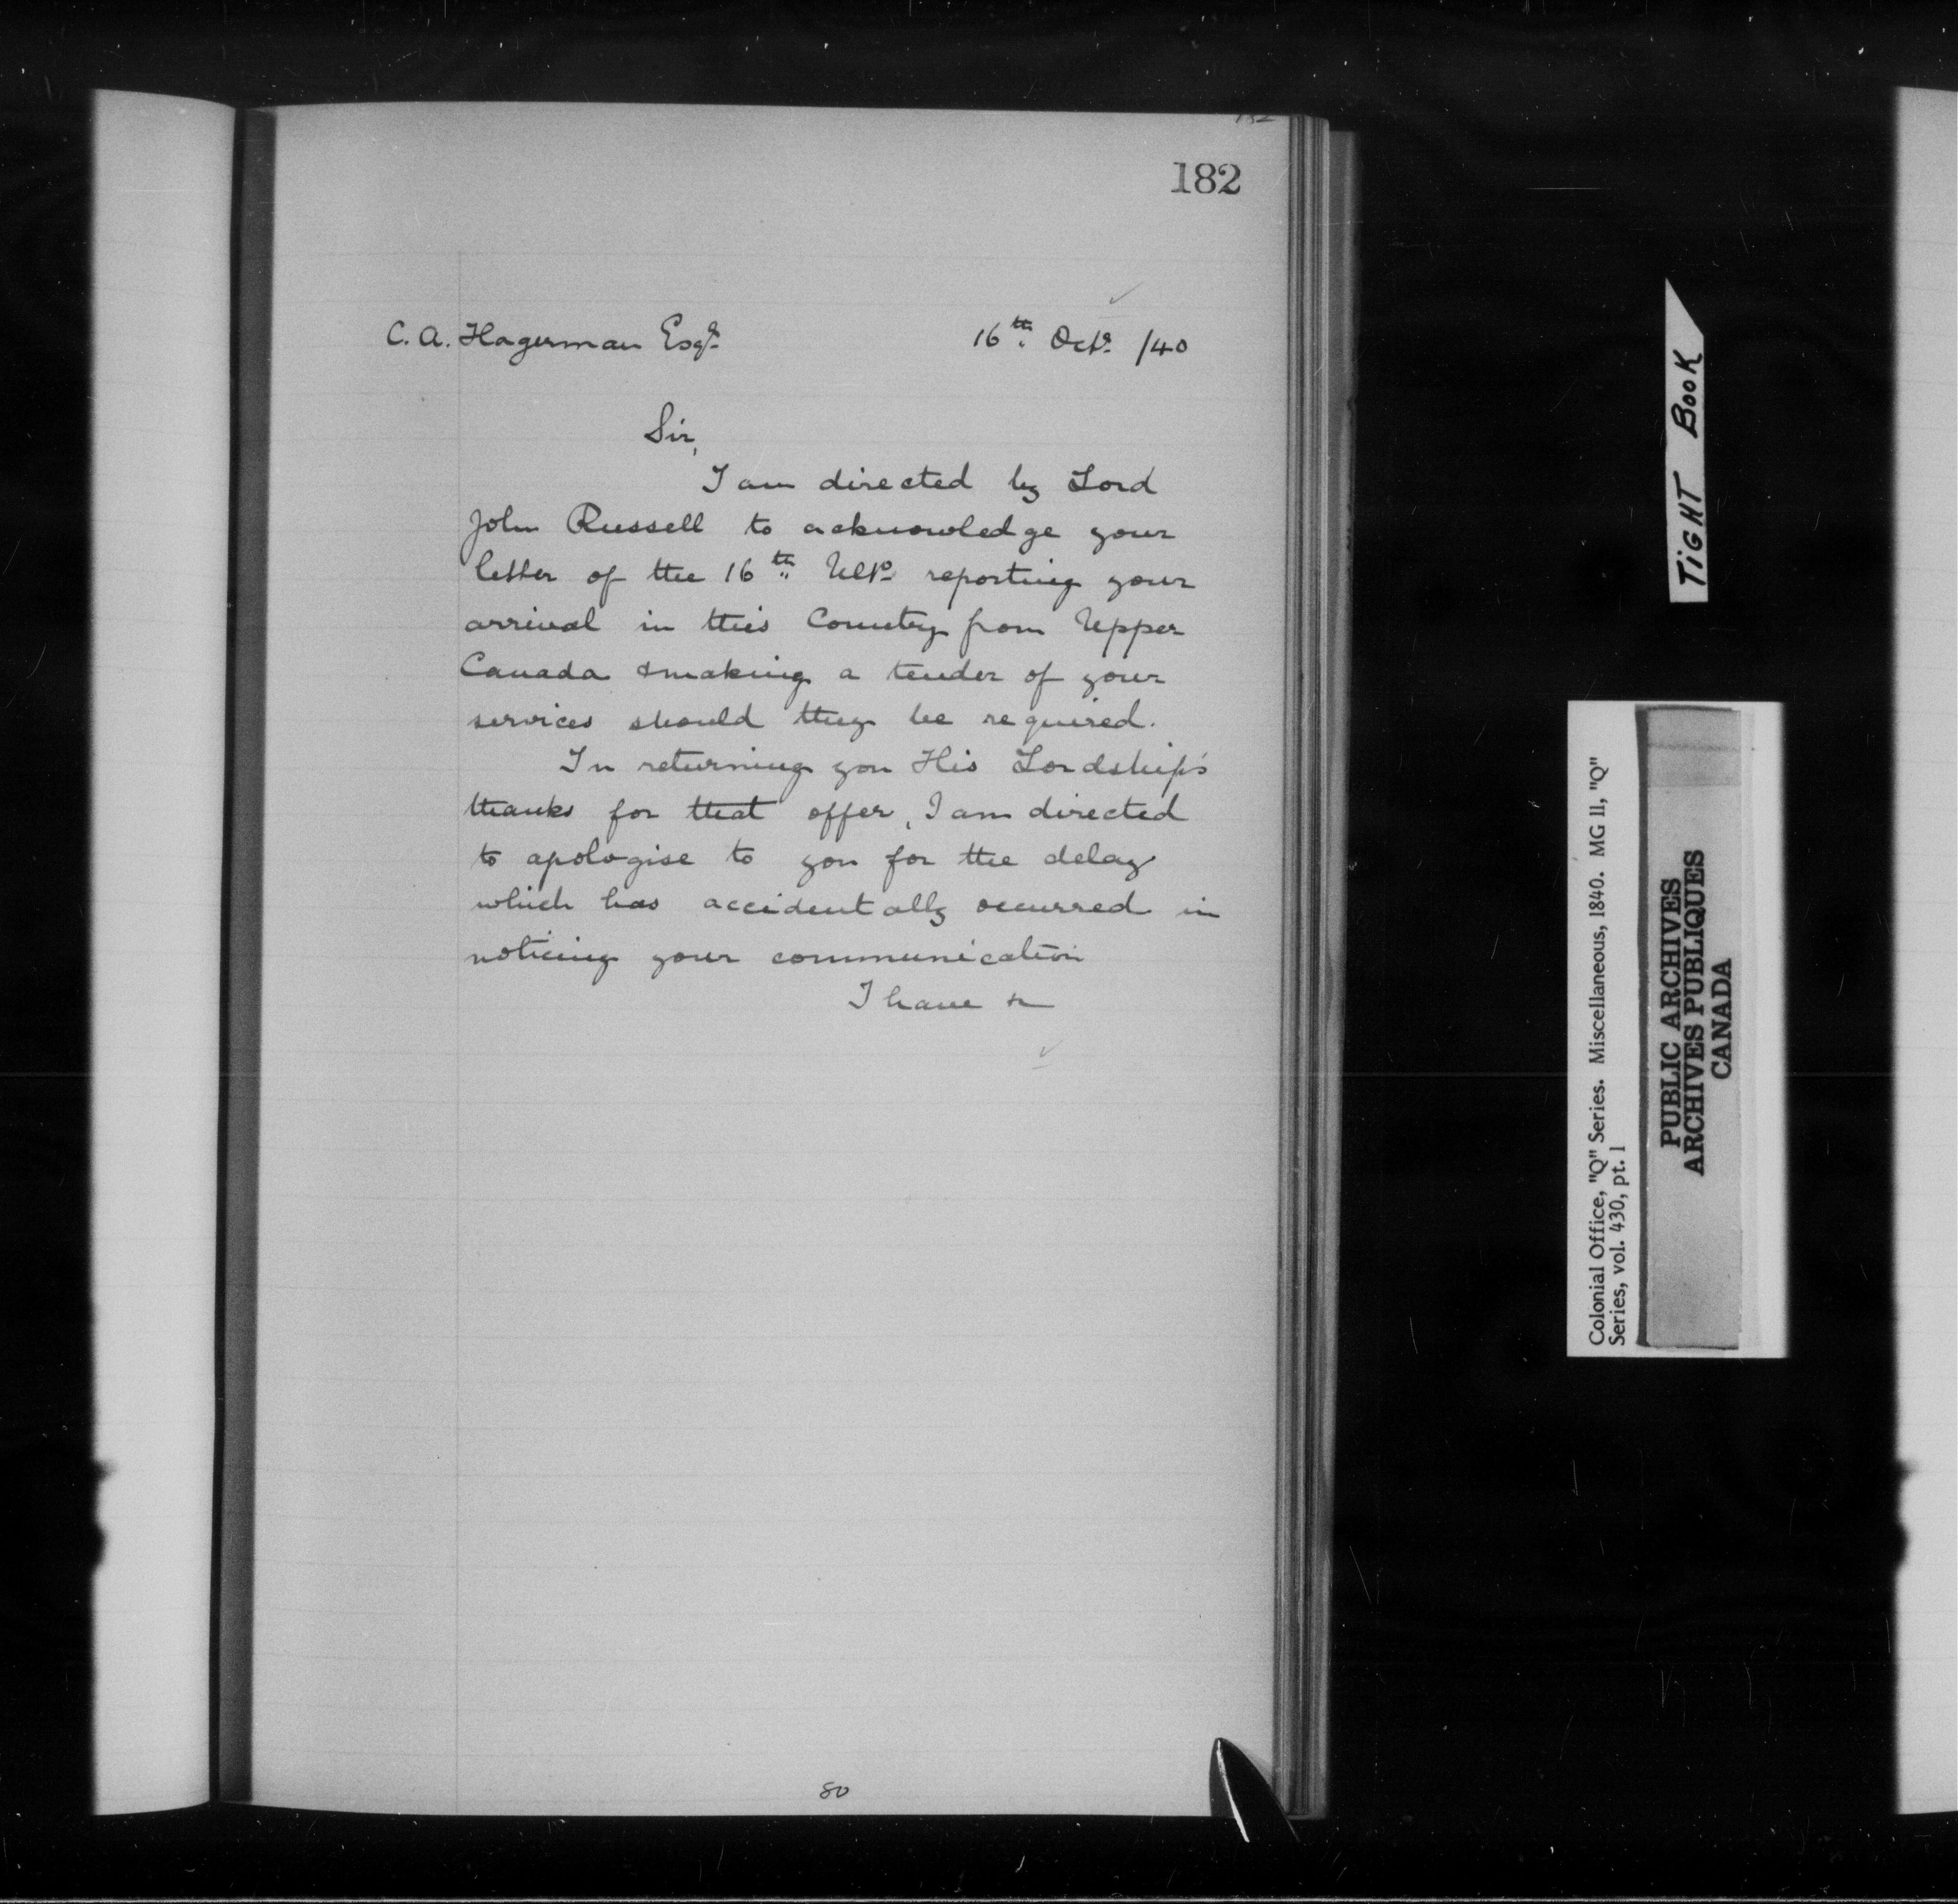 182
182
C. A. Hagerman Esqr. 16th. Octr. /40
Sir,
I am directed by Lord
John Russell to acknowledge your
letter of the 16th. Ulto. reporting your
arrival in this Country from Upper
Canada & making a tender of your
services should they be required.
In returning you His Lordship's
thanks for that offer, I am directed
to apologise to you for the delay
which has accidentally occurred in
noticing your communication
I have &c
80
TIGHT BOOK
Colonial Office, "Q" Series. Miscellaneous, 1840. MG 11, "Q"
Series, vol. 430, pt. 1
PUBLIC ARCHIVES
ARCHIVES PUBLIQUES
CANADA